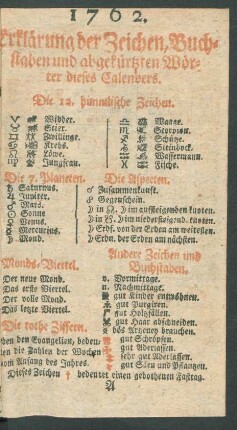 1762.
Erklärung der Zeichen, Buch-
staben und abgekürtzten Wör-
ter dieses Calenders.
Die 12. himmlische Zeichen.
♈ Widder.
♉ Stier.
♊ Zwillinge.
♋ Krebs.
♌ Löwe.
♍ Jungfrau.
♎ Waage.
♏ Scorpion.
♐ Schütze.
♑ Steinbock.
♒ Wassermann.
♓ Fische.
Die 7. Planeten.
♄ Saturnus.
♃ Jupiter.
♂ Mars.
☉ Sonne
♀ Venus.
☿ Mercurius.
☽ Mond.
Die Aspecten.
☌ Zusammenkunft.
☍ Gegenschein.
☽ in ☊, ☽ im aufsteigenden knoten.
☽ in ☋, ☽ im niedersteigend. knoten.
☽ Erdf. von der Erden am weitesten.
☽ Erdn. der Erden am nächsten.
Monds-Viertel.
Der neue Mond.
Das erste Viertel.
Der volle Mond.
Das letzte Viertel.
Die rothe Ziffern.
ben den Evangelien, bedeu-
ten die Zahlen der Wochen
vom Anfang des Jahres.
Andere Zeichen und
Buchstaben.
v. Vormittage.
n. Nachmittage.
gut Kinder entwöhnen.
gut Purgiren.
gut Holzfällen.
gut Haar abschneiden.
bös Artzney brauchen.
gut Schröpfen.
gut Aderlassen.
sehr gut Aderlassen.
gut Säen und Pflantzen.
Dieses Zeichen † bedeutet einen gebothenen Fasttag.
A